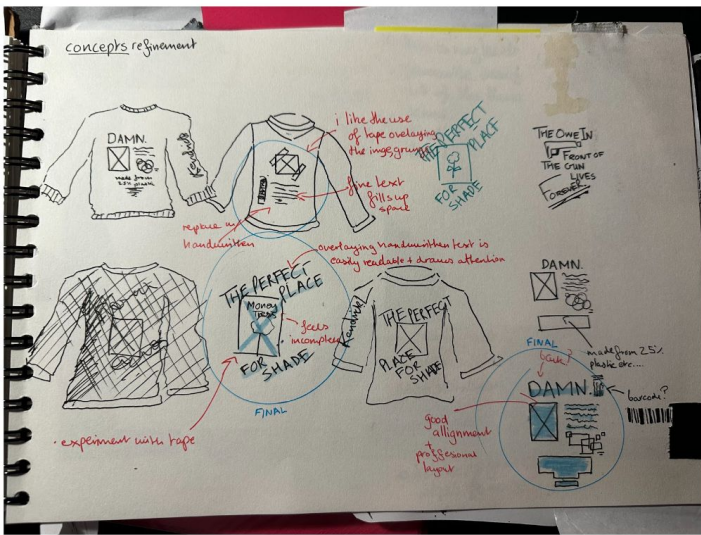 concepts refinement
DAMN.
made from
2.5% plastic
Kendrick
i like the use
of tape overlaying
the image
fine text
fills up
space
replace w/
handwritten
THE PERFECT
PLACE
FOR
SHADE
THE ONE IN
FRONT OF
THE GUN
LIVES
FOREVER
overlaying handwritten text is
easily readable + draws attention
THE PERFECT
PLACE
Money
Trees
FOR
SHADE
feels
incomplete
FINAL
• experiment with tape
Kendrick
THE PERFECT
PLACE
FOR
SHADE
DAMN.
made from 2.5%
plastic etc....
FINAL
DAMN.
barcode?
good
allignment
+
proffesional
layout